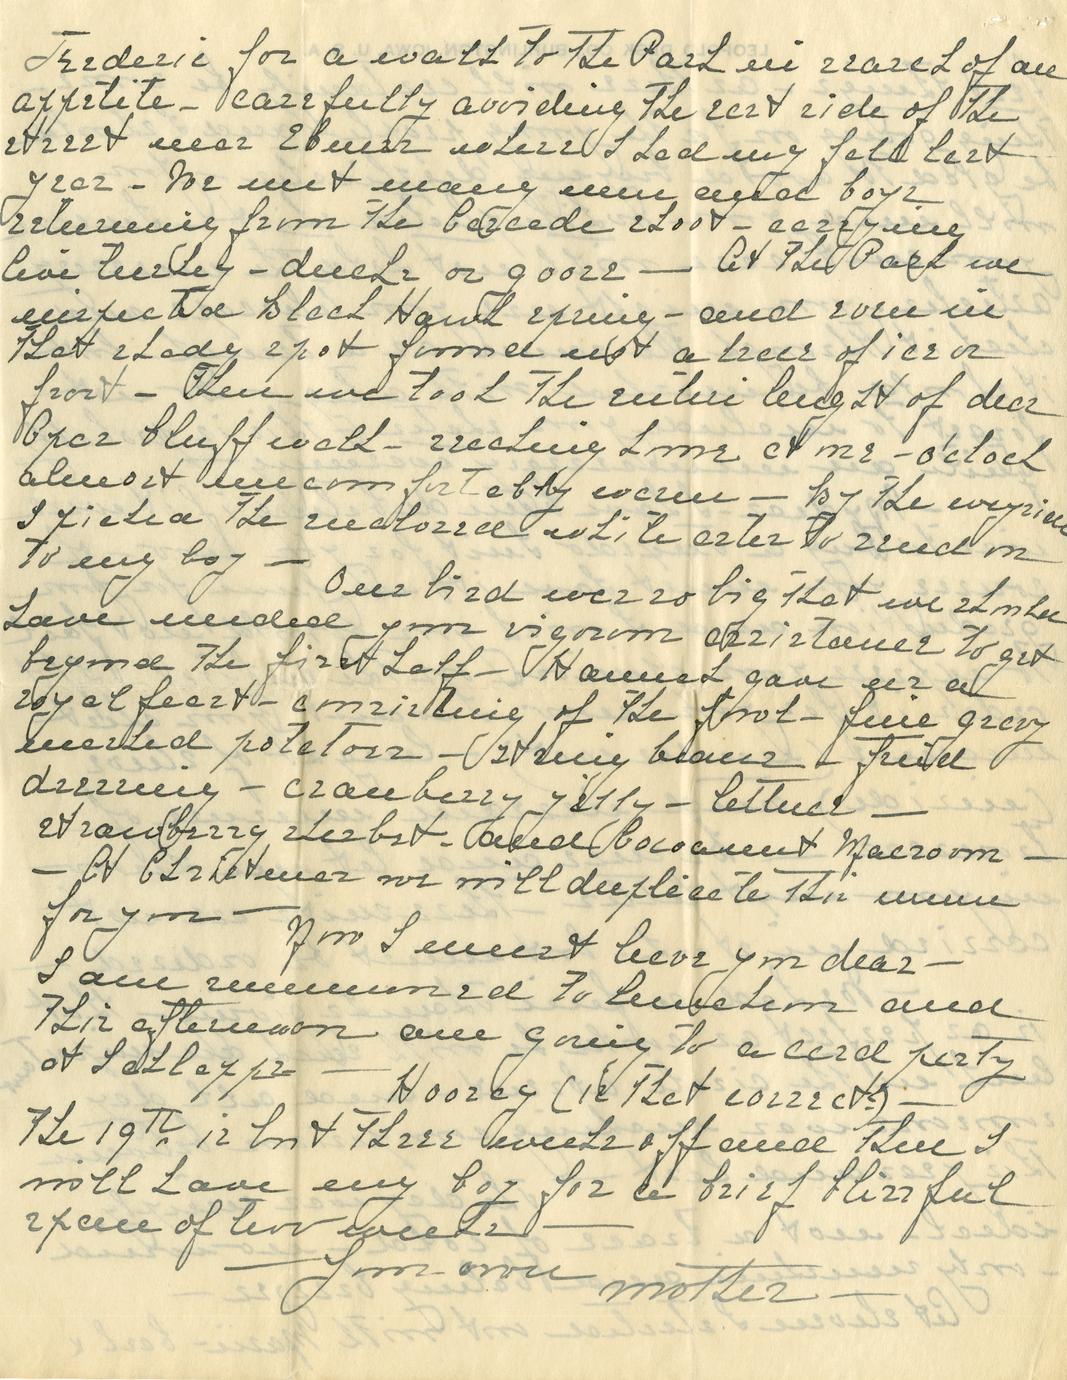 Frederic for a walk to the Park in search of an
appetite - carefully avoiding the east side of the
street near Ebner where I had my fall last
year - We met many men and boys
returning from the Cascade shoot - carrying
live turkey - ducks or goose — At the Park we
inspected Black Hawk spring - and even in
that shady spot found not a trace of ice or
frost - Then we took the entire lenght of dear
Oper bluff walk - reaching home at one - o'clock
almost uncomfortably warm — By the
I picked the enclosed white aster to send on
to my boy —
Our bird was so big that we should
have needed your vigorous assistance to get
beyond the first half - Hannah gave us a
royal feast - consisting of the fowl - fine gravy
mashed potatoes - string beans - fried
dressing - cranberry jelly - lettuce —
strawberry sherbet - and Cocoanut Macroons —
— At Christmas we will duplicate this menu
for you —
Now I must leave you dear —
I am summoned to luncheon and
this afternoon am going to a card party
at Sahler's —
Hooray (is that correct?) —
The 19th is but three weeks off and then I
will have my boy for a brief blissful
space of two weeks —
— Your own mother —